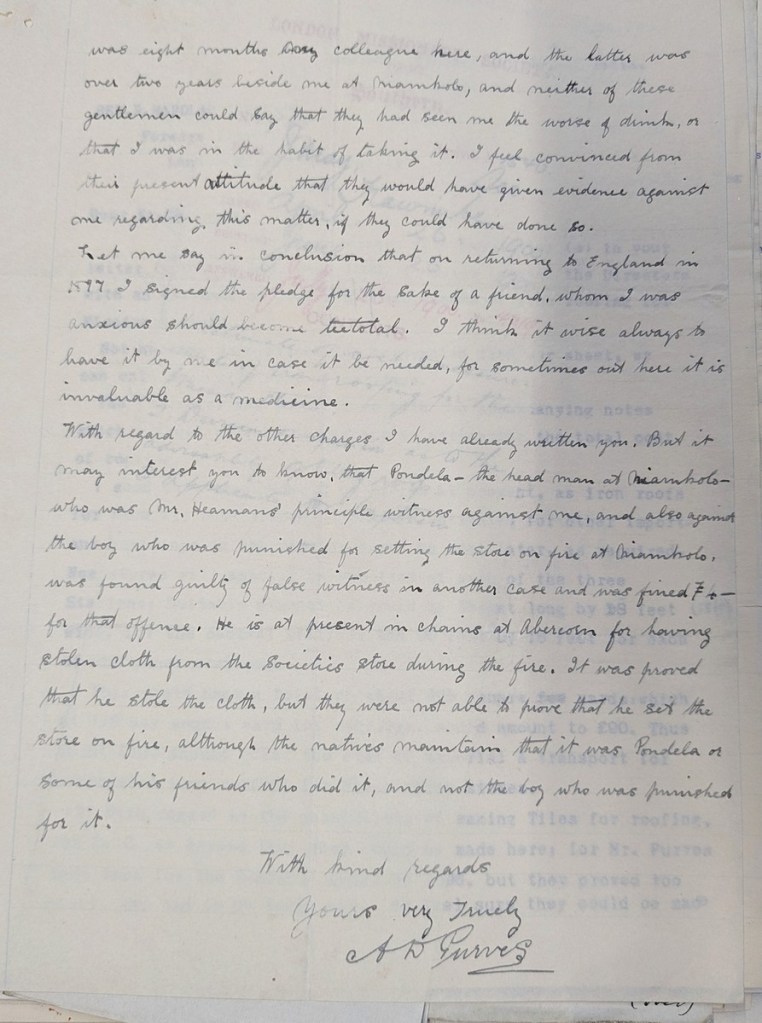 was eight months my colleague here, and the latter was
over two years beside me at Niamkolo, and neither of these
gentlemen could say that they had seen me the worse of drink, or
that I was in the habit of taking it. I feel convinced from
their present attitude that they would have given evidence against
me regarding this matter, if they could have done so.
Let me say in conclusion that on returning to England in
1897 I signed the pledge for the sake of a friend, whom I was
anxious should become teetotal. I think it wise always to
have it by me in case it be needed, for sometimes out here it is
invaluable as a medicine.
With regard to the other charges I have already written you. But it
may interest you to know, that Pondela – the head man at Niamkolo –
who was Mr. Heamans' principle witness against me, and also against
the boy who was punished for setting the store on fire at Niamkolo,
was found guilty of false witness in another case and was fined
for that offence. He is at present in chains at Abercorn for having
stolen cloth from the Societies store during the fire. It was proved
that he stole the cloth, but they were not able to prove that he set the
store on fire, although the natives maintain that it was Pondela or
some of his friends who did it, and not the boy who was punished
for it.
With kind regards
Yours very Truely
A D Purves